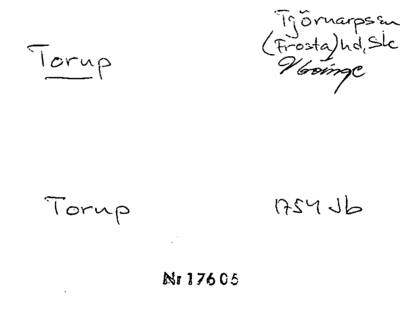 Torup
Tjörnarps sn
(Frosta) hd, Sk
V Göinge
Torup
1754 Jb
Nr 17605